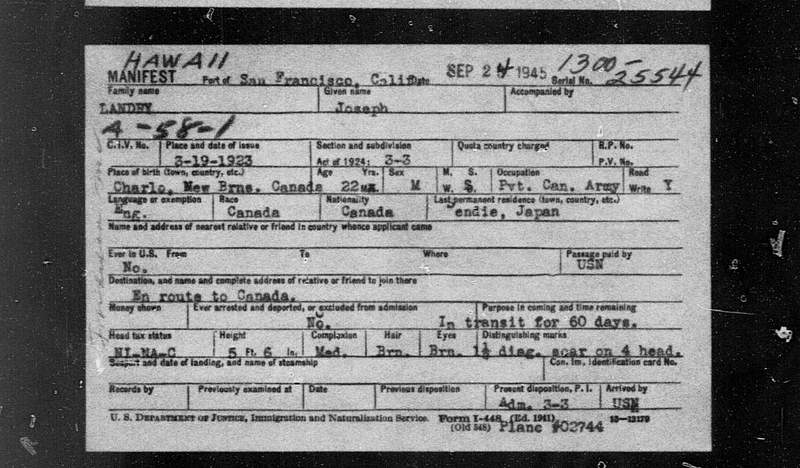 HAWAII
MANIFEST Port of San Francisco, Calif. Date SEP 24 1945 Serial No. 1300-25544
Family name Given name Accompanied by
LANDRY Joseph
A-58-1
C.I.V. No. Place and date of issue Section and subdivision Quota country charged R.P. No.
3-19-1923 Act of 1924: 3-3 P.V. No.
Place of birth (town, country, etc.) Age Yrs. Sex M. S. Occupation Read
Charlo, New Brns. Canada 22 M W. S. Pvt. Can. Army Write Y
Language or exemption Race Nationality Last permanent residence (town, country, etc.)
Eng. Canada Canada endie, Japan
Name and address of nearest relative or friend in country whence applicant came
Ever in U.S. From To Where Passage paid by
No. USN
Destination, and name and complete address of relative or friend to join there
En route to Canada.
Money shown Ever arrested and deported, or excluded from admission Purpose in coming and time remaining
No. In transit for 60 days.
Head tax status Height Complexion Hair Eyes Distinguishing marks
NI-NA-C 5 Ft. 6 In. Med. Brn. Brn. 1½ diag. scar on 4 head.
Seaport and date of landing, and name of steamship Con. Im. Identification card No.
Records by Previously examined at Date Previous disposition Present disposition, P.I. Arrived by
Adm. 3-3 USN
U. S. DEPARTMENT OF JUSTICE, Immigration and Naturalization Service. Form I-448 (Ed. 1941) 16-13179
(Old 548) Plane #02744